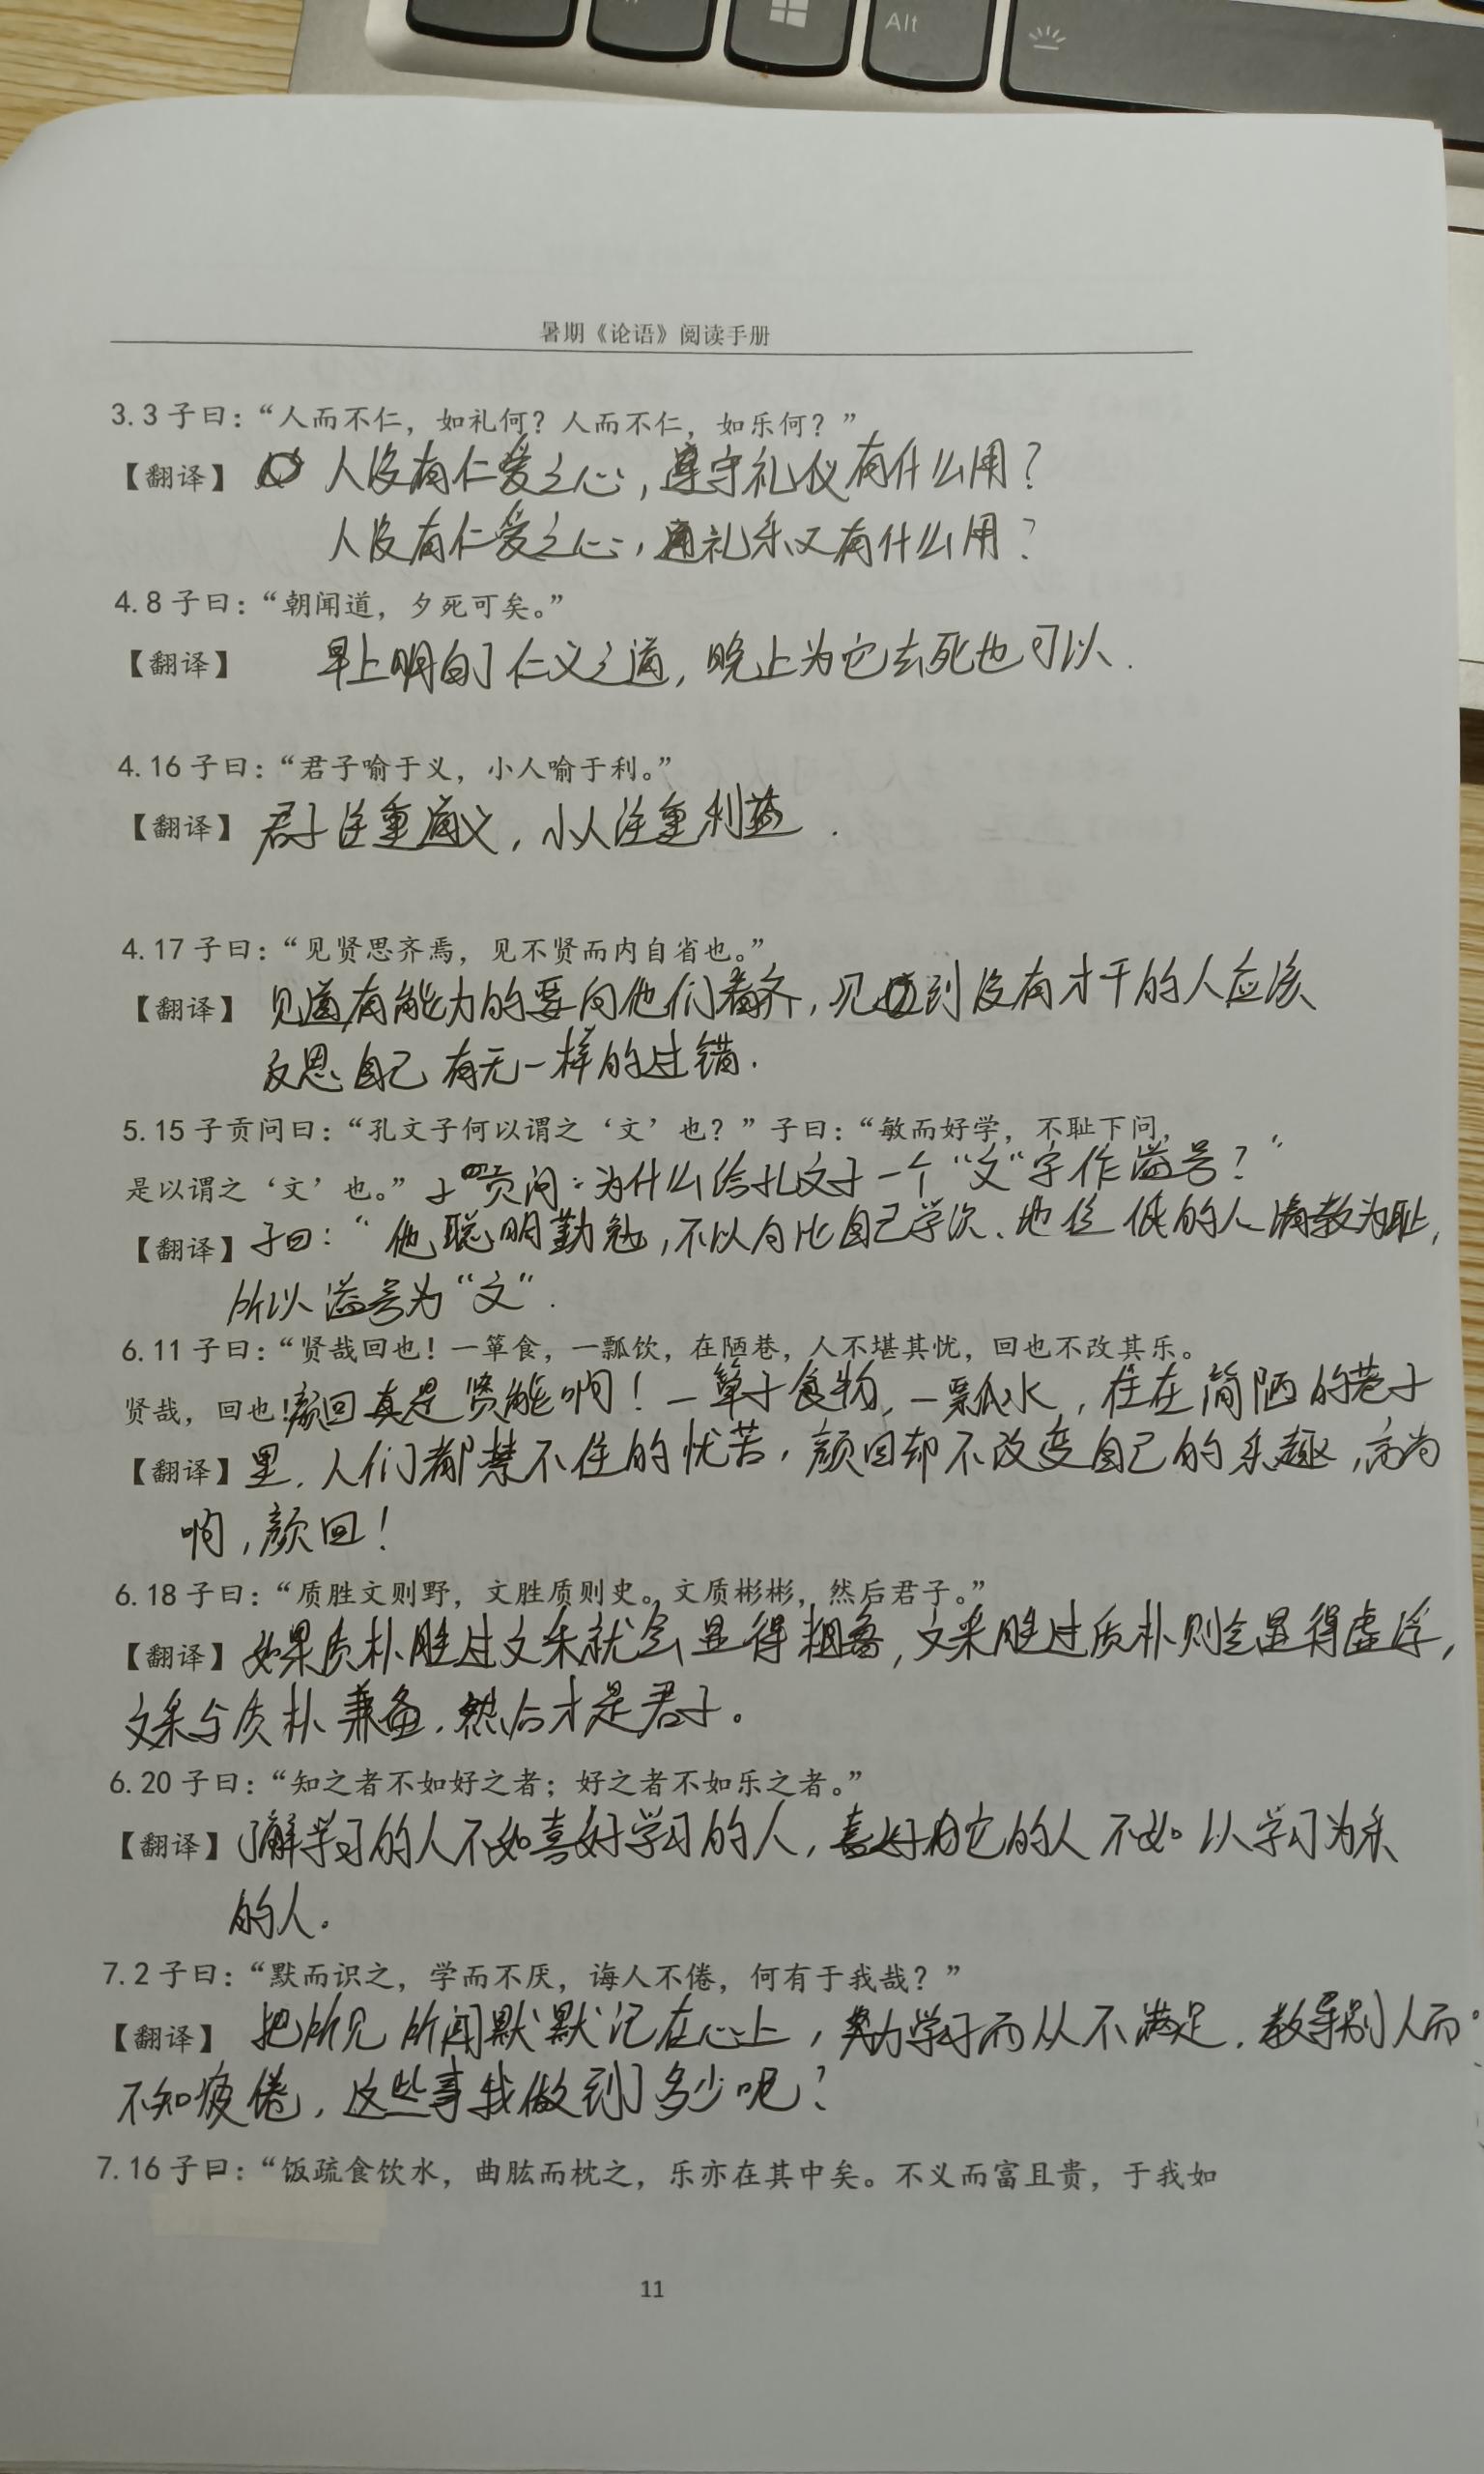 Alt
暑期《论语》阅读手册
3.3 子曰：“人而不仁，如礼何？人而不仁，如乐何？”
【翻译】 人没有仁爱之心，遵守礼仪有什么用？
人没有仁爱之心，通礼乐又有什么用？
4.8 子曰：“朝闻道，夕死可矣。”
【翻译】 早上明白了仁义之道，晚上为它去死也可以．
4.16 子曰：“君子喻于义，小人喻于利。”
【翻译】 君子注重道义，小人注重利益．
4.17 子曰：“见贤思齐焉，见不贤而内自省也。”
【翻译】 见道有能力的要向他们看齐，见到没有才干的人应该
反思自己有无一样的过错．
5.15 子贡问曰：“孔文子何以谓之‘文’也？”子曰：“敏而好学，不耻下问，
是以谓之‘文’也。” 子贡问：为什么给孔文子一个“文”字作谥号？”
【翻译】 子曰：“他聪明勤勉，不以向比自己学次、地位低的人请教为耻，
所以谥号为“文”．
6.11 子曰：“贤哉回也！一箪食，一瓢饮，在陋巷，人不堪其忧，回也不改其乐。
贤哉，回也！颜回真是贤能啊！一箪子食物，一瓢水，住在简陋的巷子
【翻译】 里，人们都禁不住的忧苦，颜回却不改变自己的乐趣，高尚
啊，颜回！
6.18 子曰：“质胜文则野，文胜质则史。文质彬彬，然后君子。”
【翻译】 如果质朴胜过文采就会显得粗鲁，文采胜过质朴则会显得虚浮，
文采与质朴兼备，然后才是君子。
6.20 子曰：“知之者不如好之者；好之者不如乐之者。”
【翻译】 了解学习的人不如喜好学习的人，喜好它的人不如以学习为乐
的人。
7.2 子曰：“默而识之，学而不厌，诲人不倦，何有于我哉？”
【翻译】 把所见所闻默默记在心上，努力学习而从不满足，教导别人而
不知疲倦，这些事我做到了多少呢？
7.16 子曰：“饭疏食饮水，曲肱而枕之，乐亦在其中矣。不义而富且贵，于我如
11